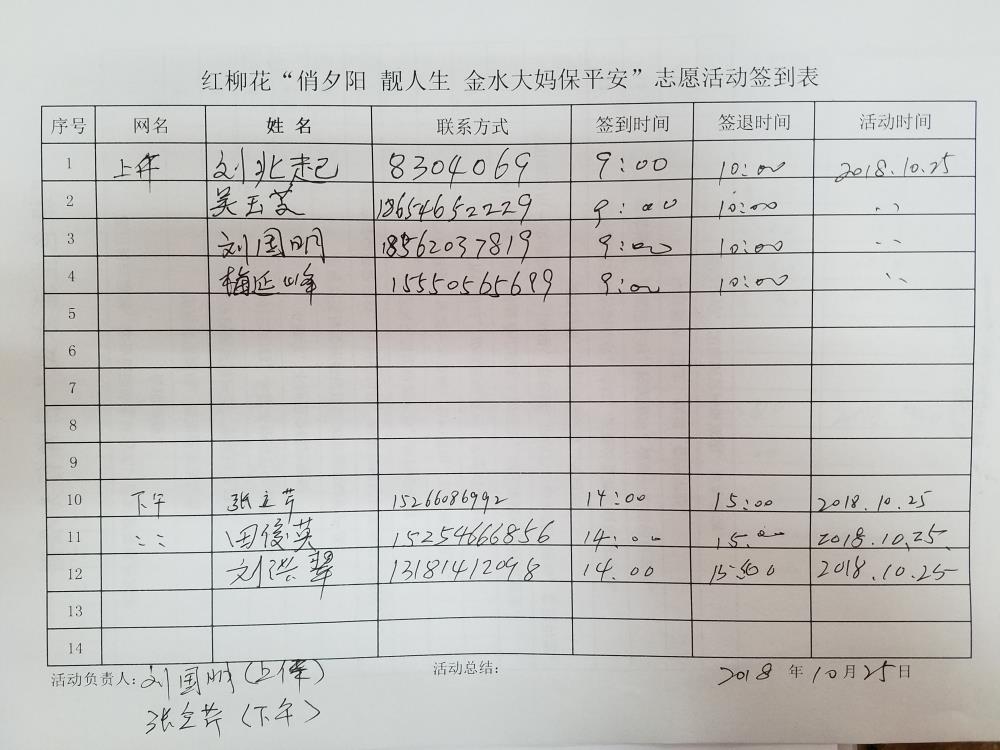 红柳花“俏夕阳 靓人生 金水大妈保平安”志愿活动签到表
序号 网名 姓名 联系方式 签到时间 签退时间 活动时间
1 上午 刘兆起 8304069 9:00 10:00 2018.10.25
2 吴玉芝 18654652229 9:00 10:00 〃
3 刘国明 18562037819 9:00 10:00 〃
4 梅延峰 15550565699 9:00 10:00 〃
5
6
7
8
9
10 下午 张立芹 15266086992 14:00 15:00 2018.10.25
11 〃 田俊英 15254666856 14:00 15:00 2018.10.25.
12 刘洪翠 13181412098 14.00 15:00 2018.10.25
13
14
活动负责人:刘国明(上午) 活动总结: 2018年10月25日
张立芹(下午)